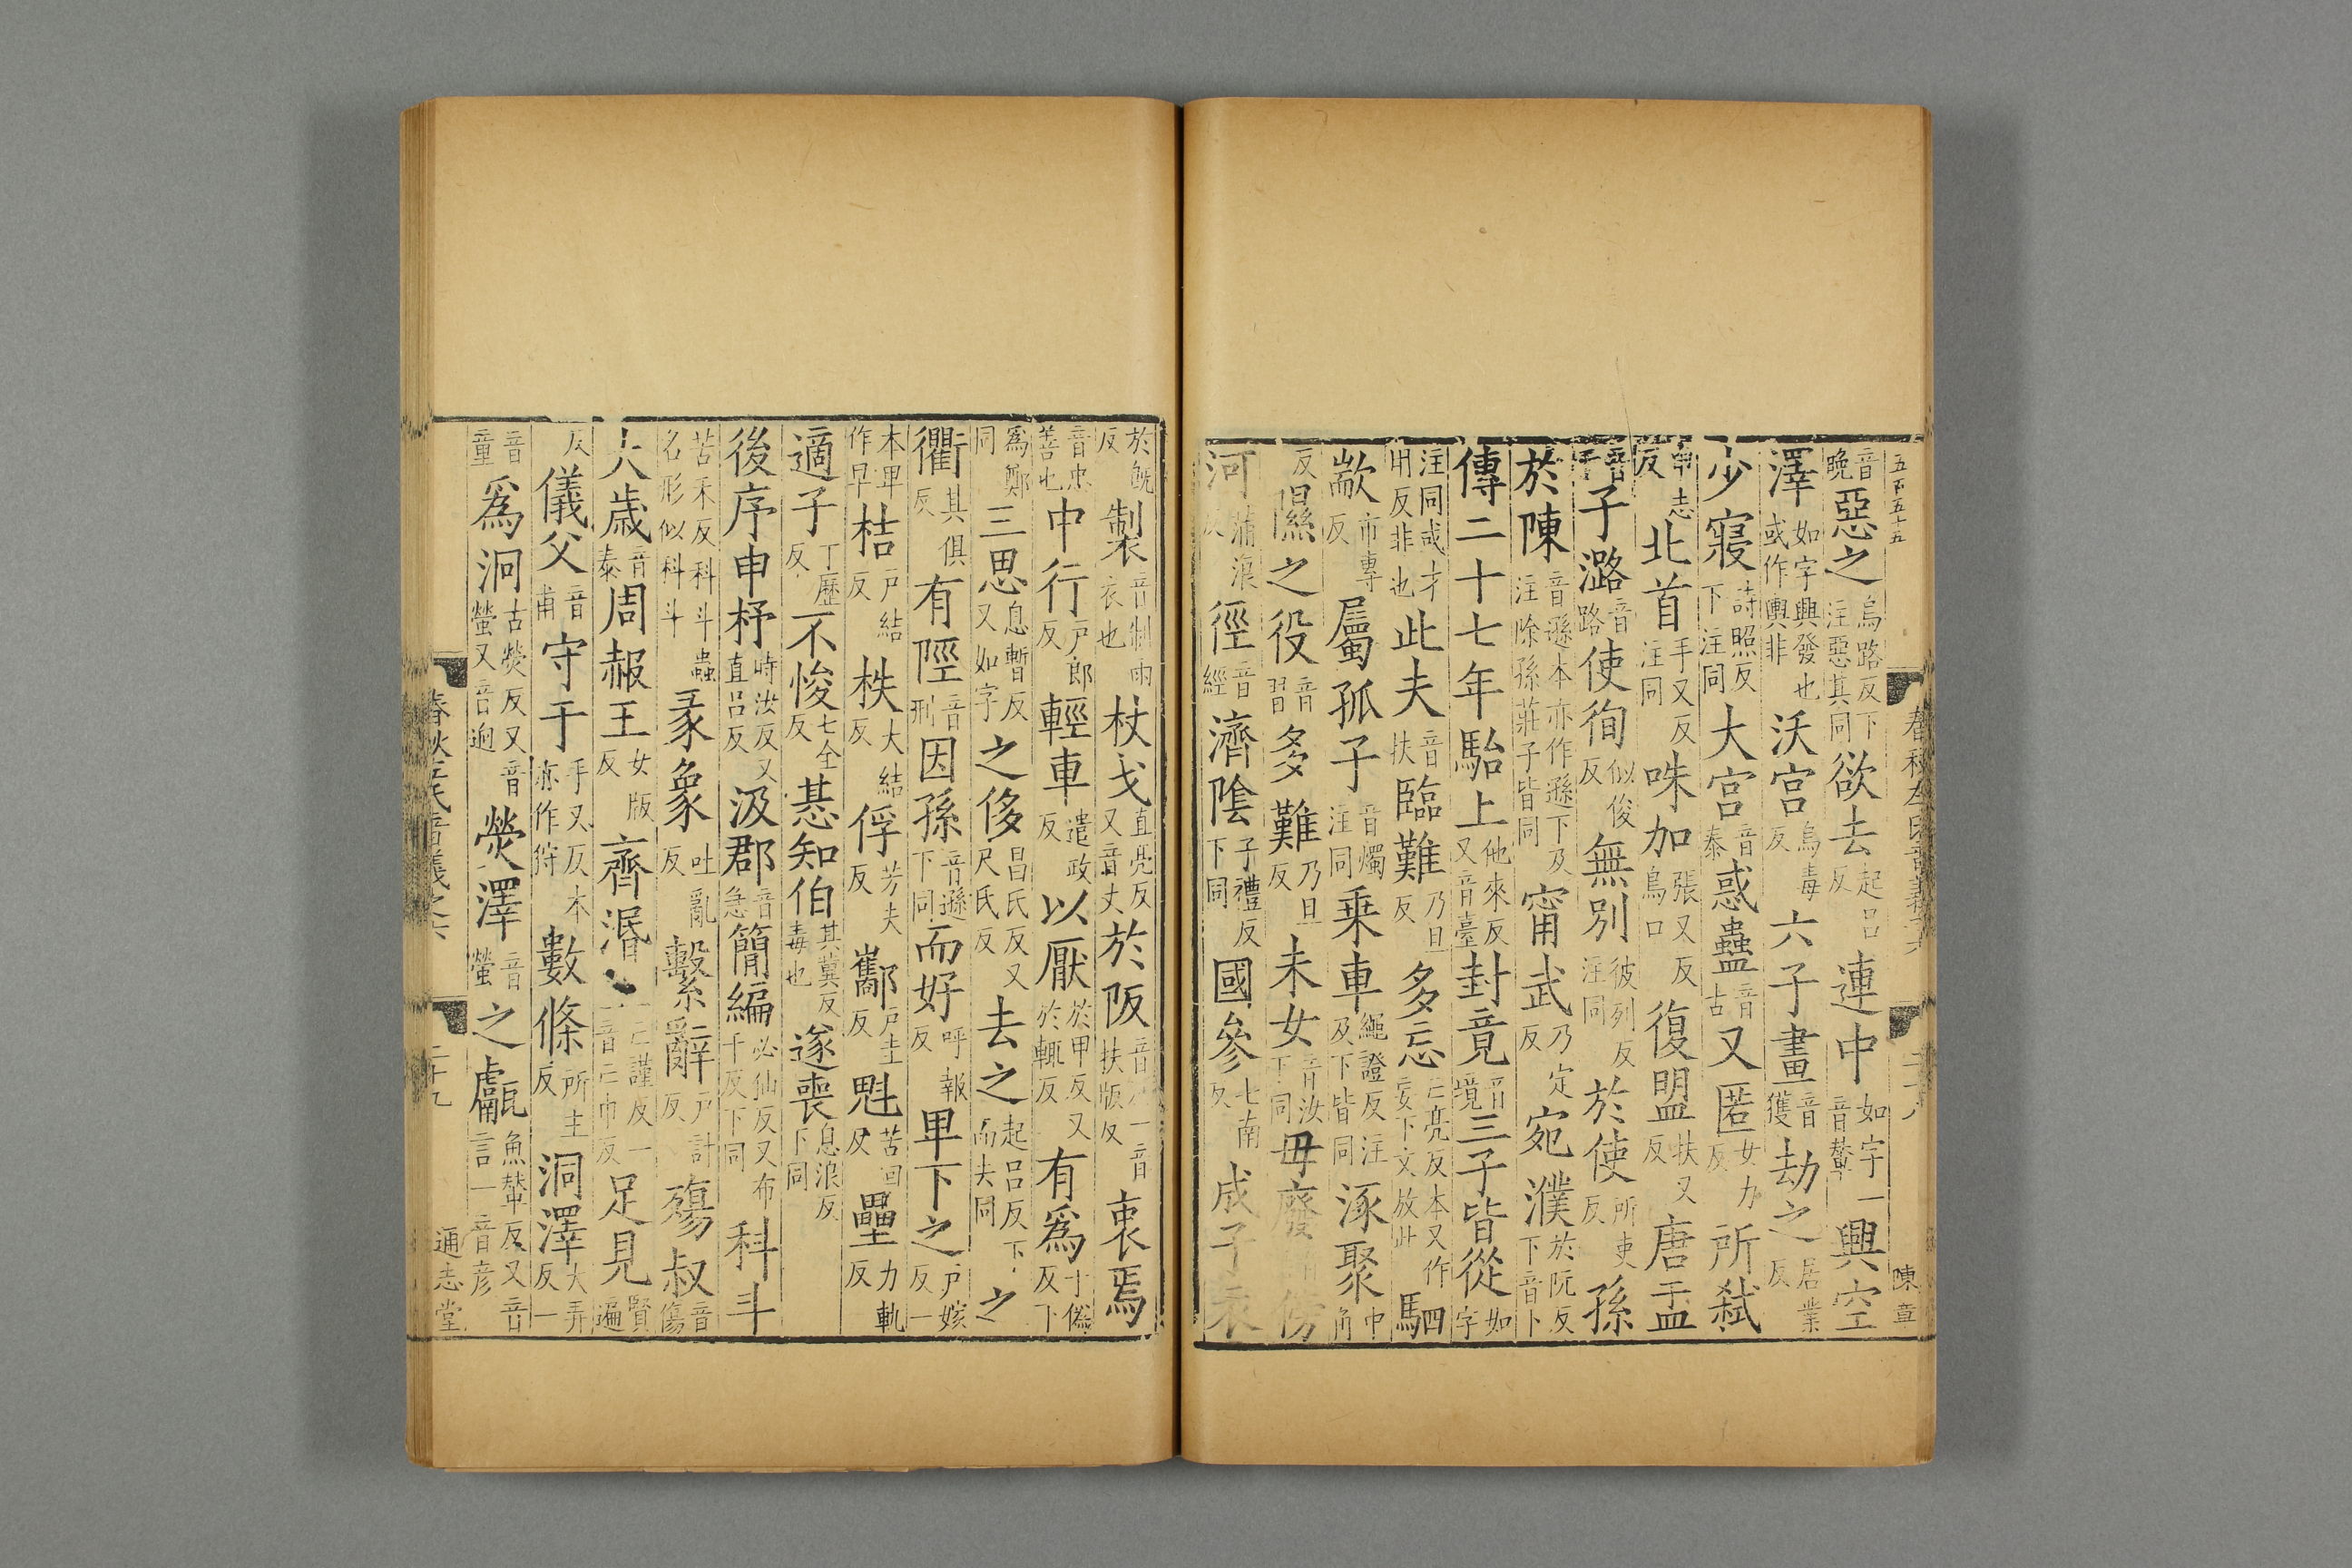 音晚惡之烏路反下注惡其同欲去起呂反連中如字一音輦興空
澤如字興發也或作輿非沃宮烏毒反六子畫音獲劫之居業反
少寢詩照反下注同大宮音泰惑蠱音古又匿女力反所弒
申志反北首手又反注同咮加張又反烏口復盟扶又反唐盂
音于子潞音路使徇似俊反無別彼列反注同於使所吏反孫
於陳音遜本亦作遜下及注除孫莊子皆同甯武乃定反宛濮於阮反下音卜
傳二十七年駘上他來反又音臺封竟音境三子皆從如字
注同或才用反非也此夫音扶臨難乃旦反多忘亡亮反本又作妄下文放此馬四
歂市專反屬孤子音燭注同乗車繩證反注及下皆同涿聚中角
反隰之役音習多難乃旦反未女音汝下同毋廢傍
河蒲浪反徑音經濟陰子禮反下同國參七南反成子衣
於旣反製音制雨衣也杖戈直亮反又音丈於阪音反一音扶版反衷焉
音忠善也中行戸郎反輕車遣政反以厭於甲反又於輒反有爲于僞反下
爲鄭同三思息暫反又如字之侈昌氏反又尺氏反去之起呂反下而夫同之
衢其俱反有陘音刑因孫音遜下同而好呼報反甲下之戸嫁反一
本甲作早桔戸結反柣大結反俘芳夫反酅戸圭反魁苦回反壘力軌反
適子丁歷反不悛七全反惎知伯其冀反毒也遂喪息浪反下同
後序申杼時汝反又直呂反汲郡音急簡編必仙反又布千反下同科斗
苦禾反科斗蟲名形似科斗彖象吐亂反繫辭戸計反殤叔音傷
大歲音泰周赧王女版反齊湣亡謹反一音亡巾反足見賢遍
反儀父音甫守于手又反本亦作狩數條所主反洞澤大弄反一
音童爲泂古熒反又音螢又音迥熒澤音螢之甗魚輦反又音言一音彦
春秋左氏音義之六
二十八
陳章
二十九
通志堂